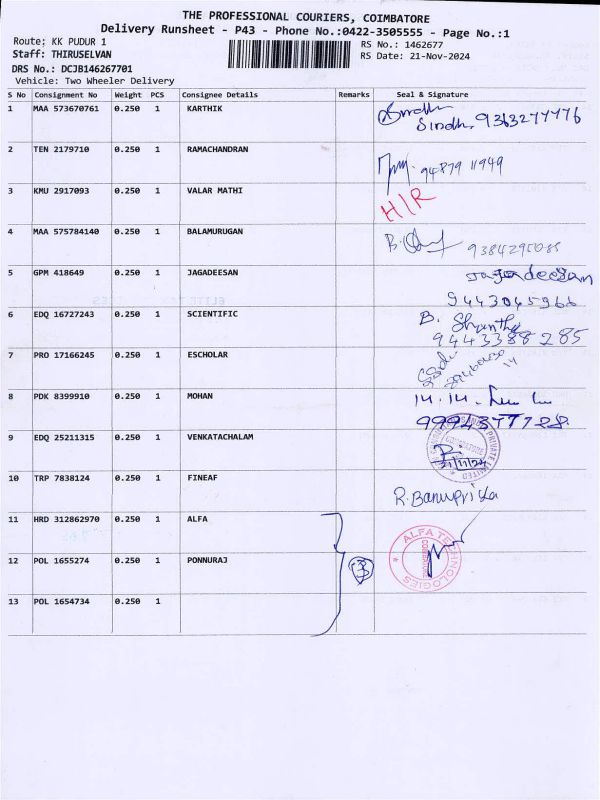 THE PROFESSIONAL COURIERS, COIMBATORE
Delivery Runsheet - P43 - Phone No.:0422-3505555 - Page No.:1
Route: KK PUDUR 1
RS No.: 1462677
Staff: THIRUSELVAN
RS Date: 21-Nov-2024
DRS No.: DCJB146267701
Vehicle: Two Wheeler Delivery
S No Consignment No Weight PCS Consignee Details Remarks Seal & Signature
1 MAA 573670761 0.250 1 KARTHIK
Sindh, 9363277776
2 TEN 2179710 0.250 1 RAMACHANDRAN
94879 11949
3 KMU 2917093 0.250 1 VALAR MATHI
H/R
4 MAA 575784140 0.250 1 BALAMURUGAN
5 GPM 418649 0.250 1 JAGADEESAN Jagadeesan
9443045966
6 EDQ 16727243 0.250 1 SCIENTIFIC B. Shantha
9443388285
7 PRO 17166245 0.250 1 ESCHOLAR
8 PDK 8399910 0.250 1 MOHAN 14.14.
9 EDQ 25211315 0.250 1 VENKATACHALAM
PRIVATE LIMITED
COIMBATORE
21/11/24
10 TRP 7838124 0.250 1 FINEAF
R. Banupriya
11 HRD 312862970 0.250 1 ALFA
12 POL 1655274 0.250 1 PONNURAJ
3
ALFA TECHNOLOGIES
COIMBATORE
13 POL 1654734 0.250 1